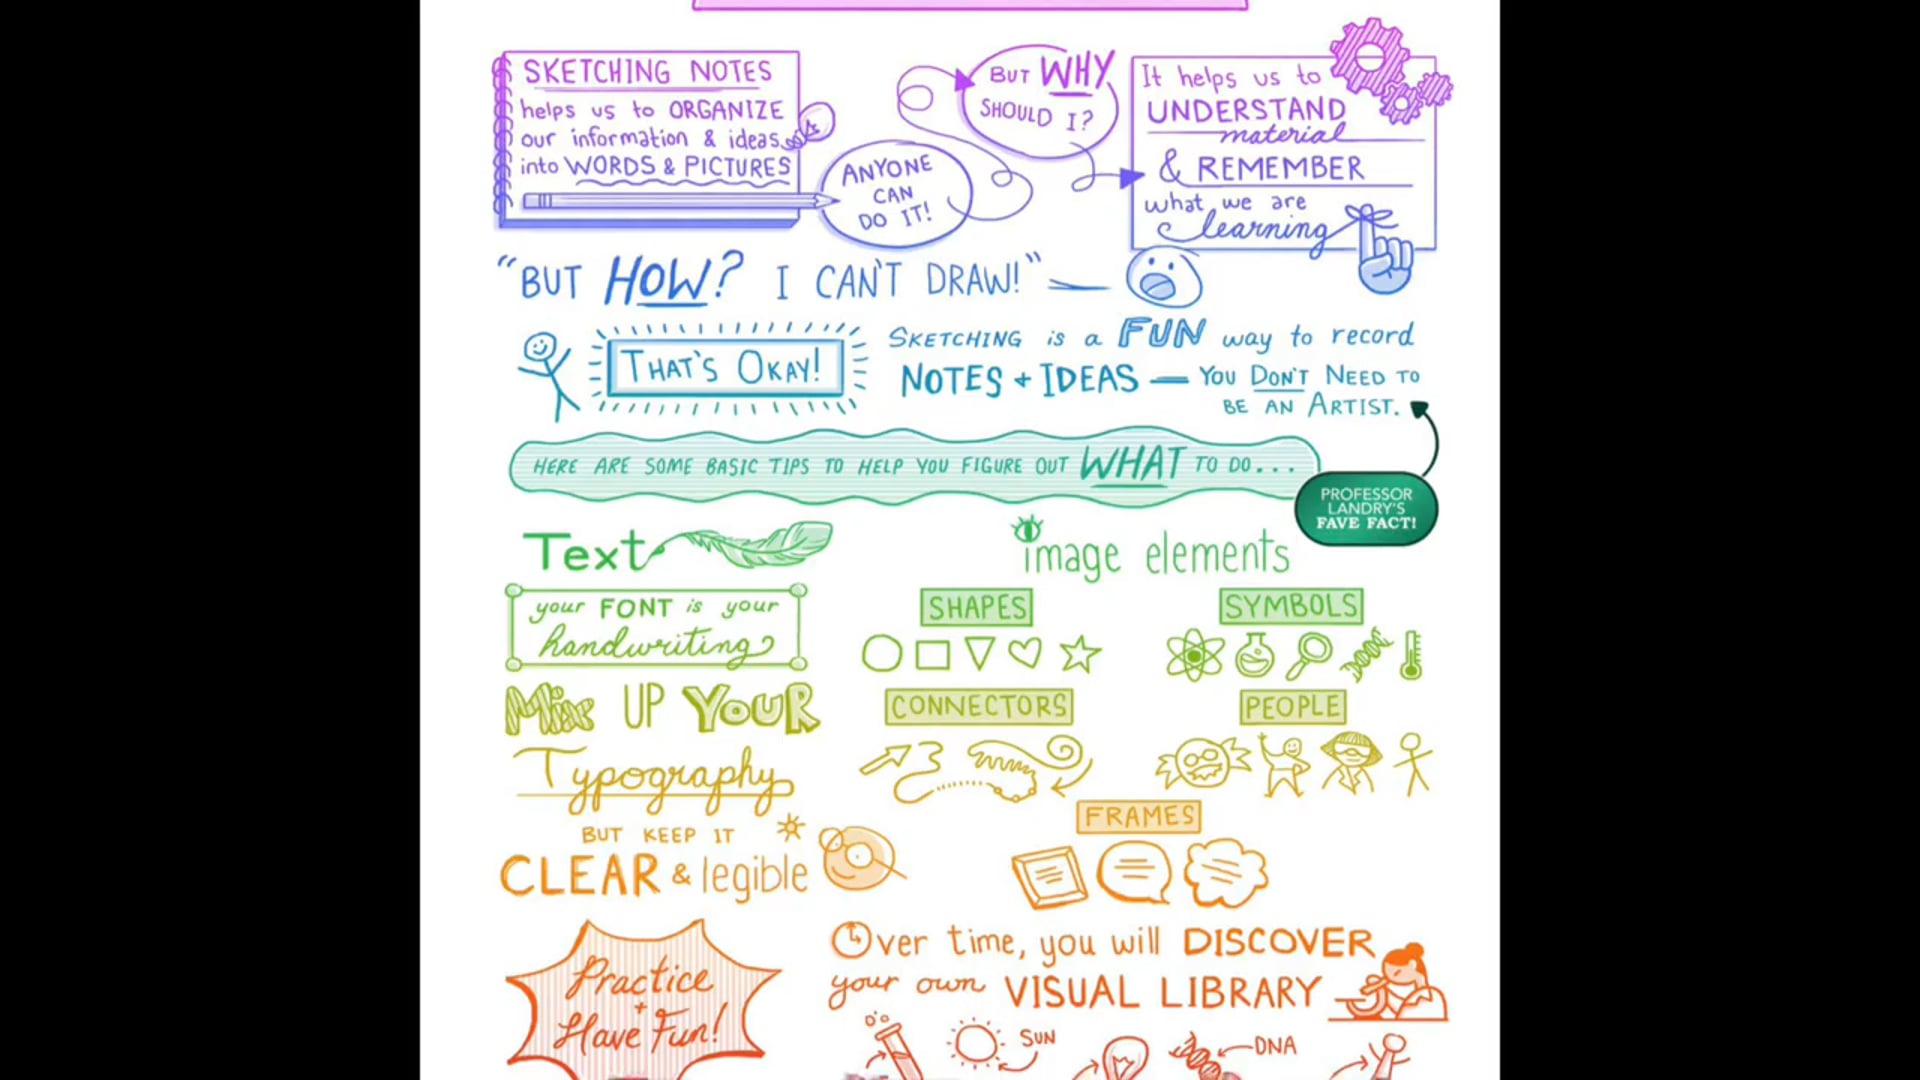 SKETCHING NOTES
helps us to ORGANIZE
our information & ideas
into WORDS & PICTURES
ANYONE
CAN
DO IT!
BUT WHY
SHOULD I?
It helps us to
UNDERSTAND
material
& REMEMBER
what we are
learning
"BUT HOW? I CAN'T DRAW!"
THAT'S OKAY!
SKETCHING is a FUN way to record
NOTES + IDEAS — YOU DON'T NEED TO
BE AN ARTIST.
HERE ARE SOME BASIC TIPS TO HELP YOU FIGURE OUT WHAT TO DO...
PROFESSOR
LANDRY'S
FAVE FACT!
Text
your FONT is your
handwriting
Mix UP YOUR
Typography
BUT KEEP IT
CLEAR & legible
image elements
SHAPES
SYMBOLS
CONNECTORS
PEOPLE
FRAMES
Practice
+
Have Fun!
Over time, you will DISCOVER
your own VISUAL LIBRARY
SUN
DNA